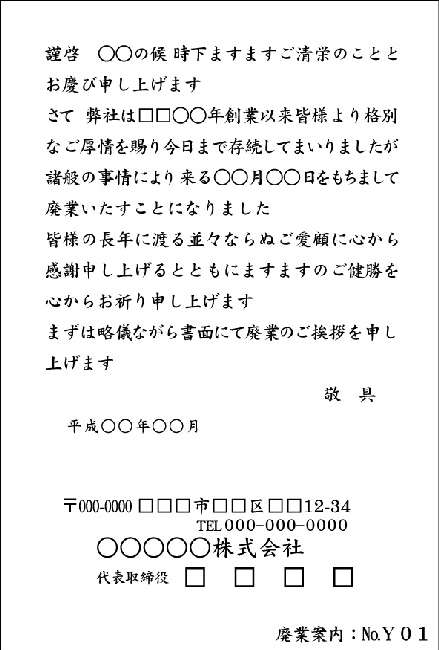 謹啓　〇〇の候 時下ますますご清栄のことと
お慶び申し上げます
さて 弊社は□□〇〇年創業以来皆様より格別
なご厚情を賜り今日まで存続してまいりましたが
諸般の事情により 来る〇〇月〇〇日をもちまして
廃業いたすことになりました
皆様の長年に渡る並々ならぬご愛顧に心から
感謝申し上げるとともにますますのご健勝を
心からお祈り申し上げます
まずは略儀ながら書面にて廃業のご挨拶を申し
上げます
敬　具
平成〇〇年〇〇月
〒000-0000 □□□市□□区□□12-34
TEL 000-000-0000
〇〇〇〇〇株式会社
代表取締役　□　□　□　□
廃業案内：No.Y０１